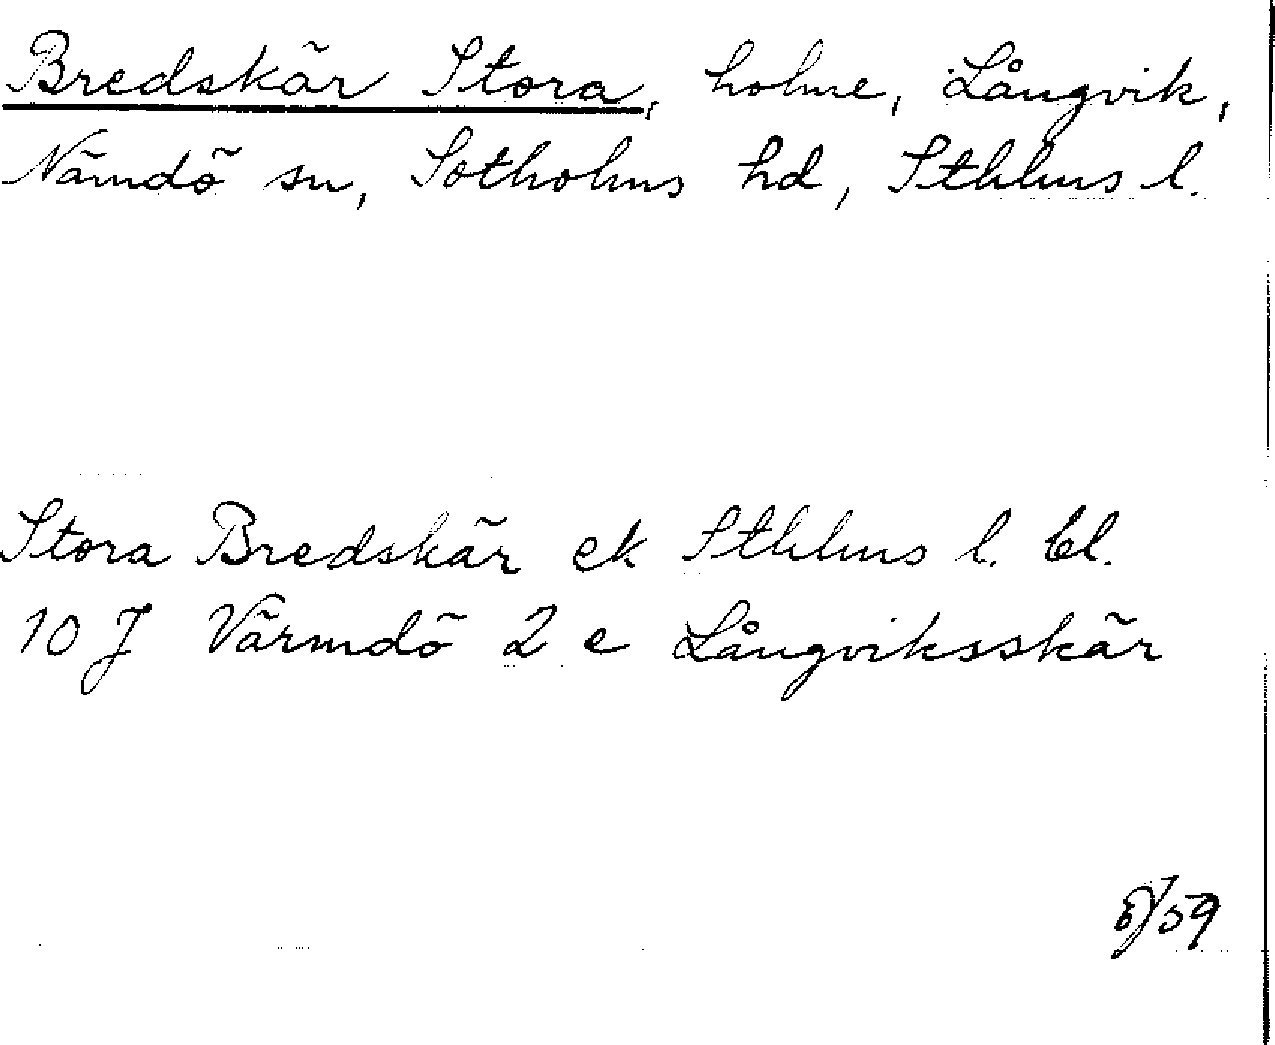 Bredskär Stora, holme, Långvik,
Nämdö sn, Sotholms hd, Sthlms l.
Stora Bredskär ek Sthlms l. bl.
10 J Värmdö 2 e Långviksskär
/59